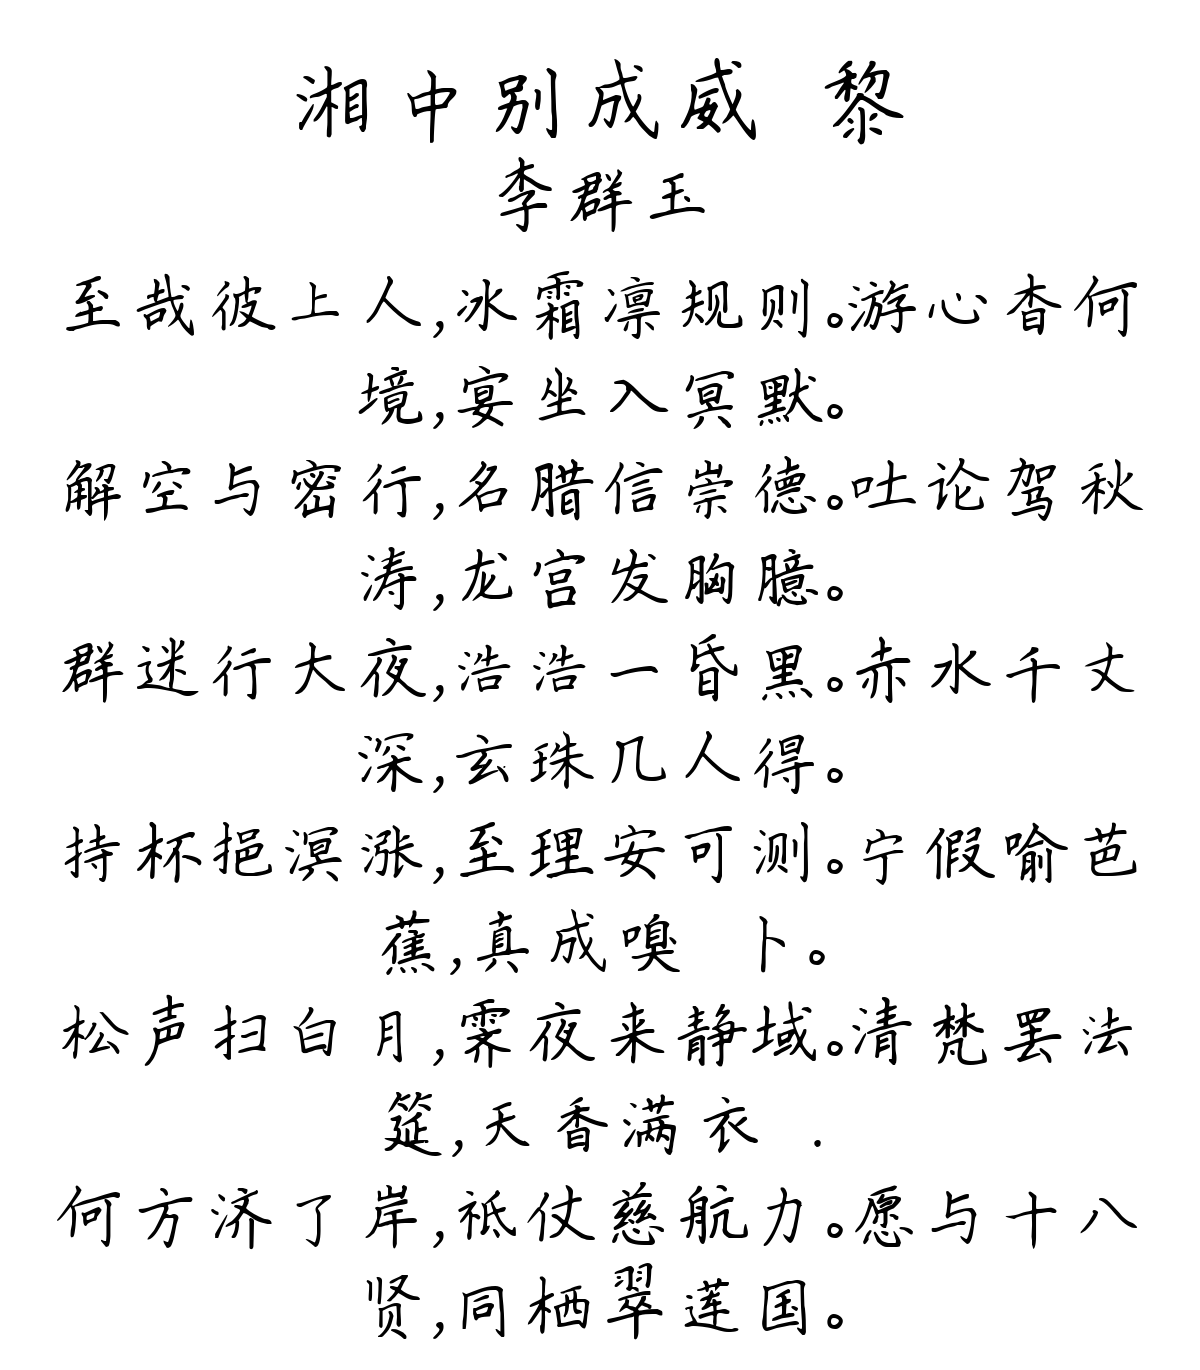 湘中别成威 黎
李群玉
至哉彼上人,冰霜凛规则。游心杳何
境,宴坐入冥默。
解空与密行,名腊信崇德。吐论驾秋
涛,龙宫发胸臆。
群迷行大夜,浩浩一昏黑。赤水千丈
深,玄珠几人得。
持杯挹溟涨,至理安可测。宁假喻芭
蕉,真成嗅 卜。
松声扫白月,霁夜来静域。清梵罢法
筵,天香满衣 .
何方济了岸,祗仗慈航力。愿与十八
贤,同栖翠莲国。